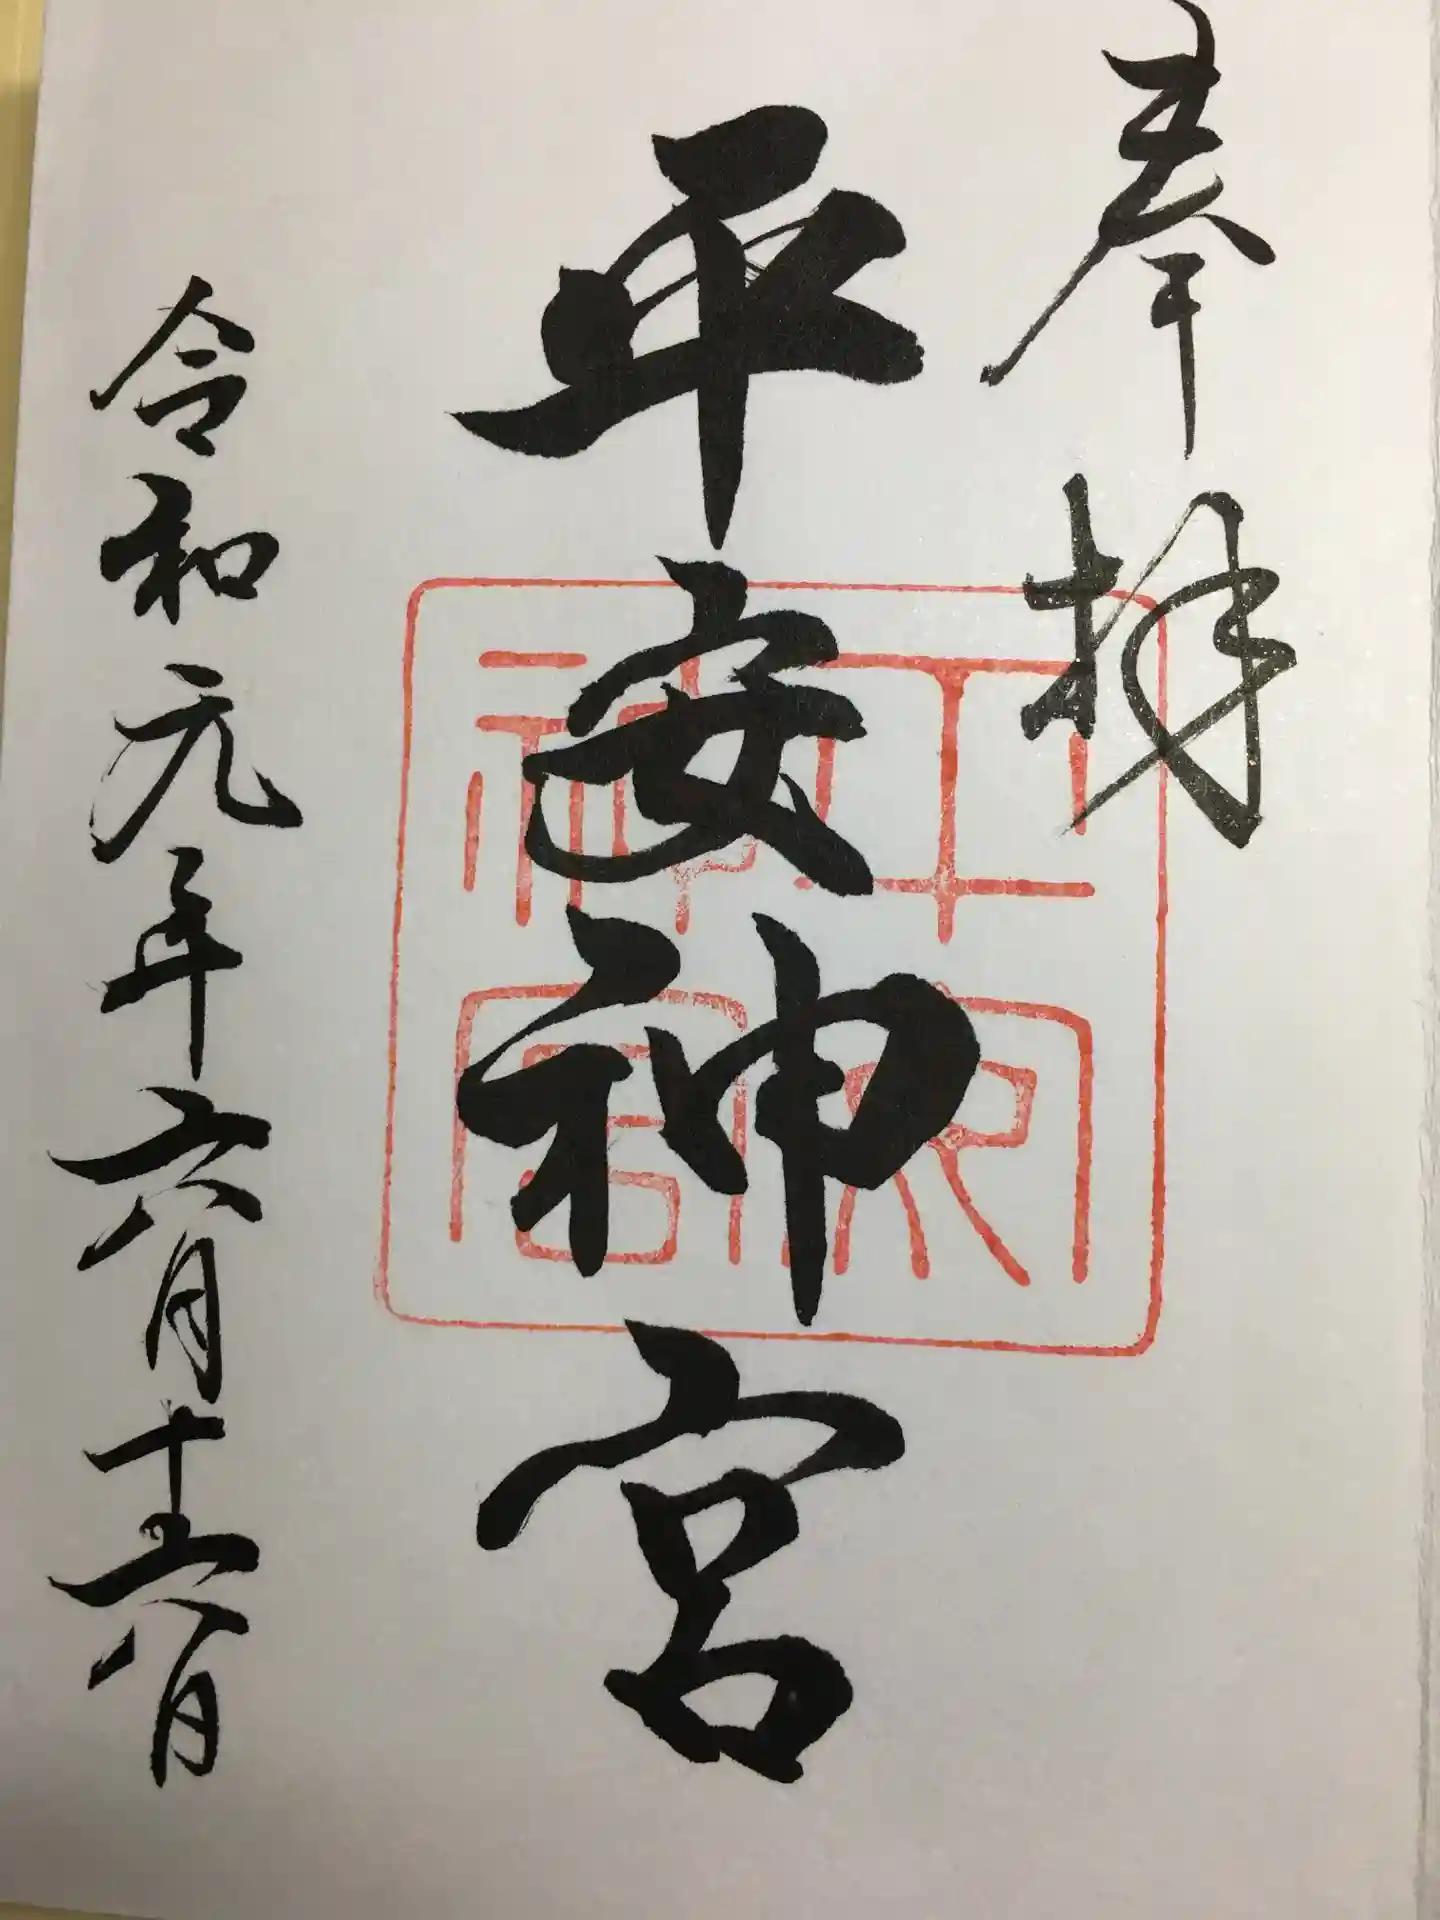 奉拝
平安神宮
平安神宮
令和元年六月十六日